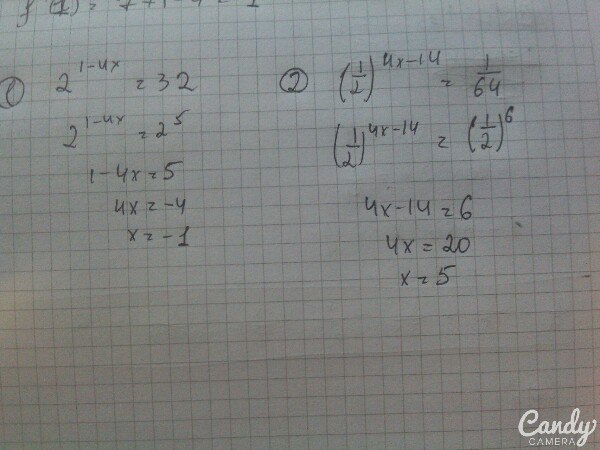 ① 2^(1-4x) = 32
2^(1-4x) = 2^5
1-4x=5
4x=-4
x=-1
② (1/2)^(4x-14) = 1/64
(1/2)^(4x-14) = (1/2)^6
4x-14=6
4x=20
x=5
Candy
CAMERA